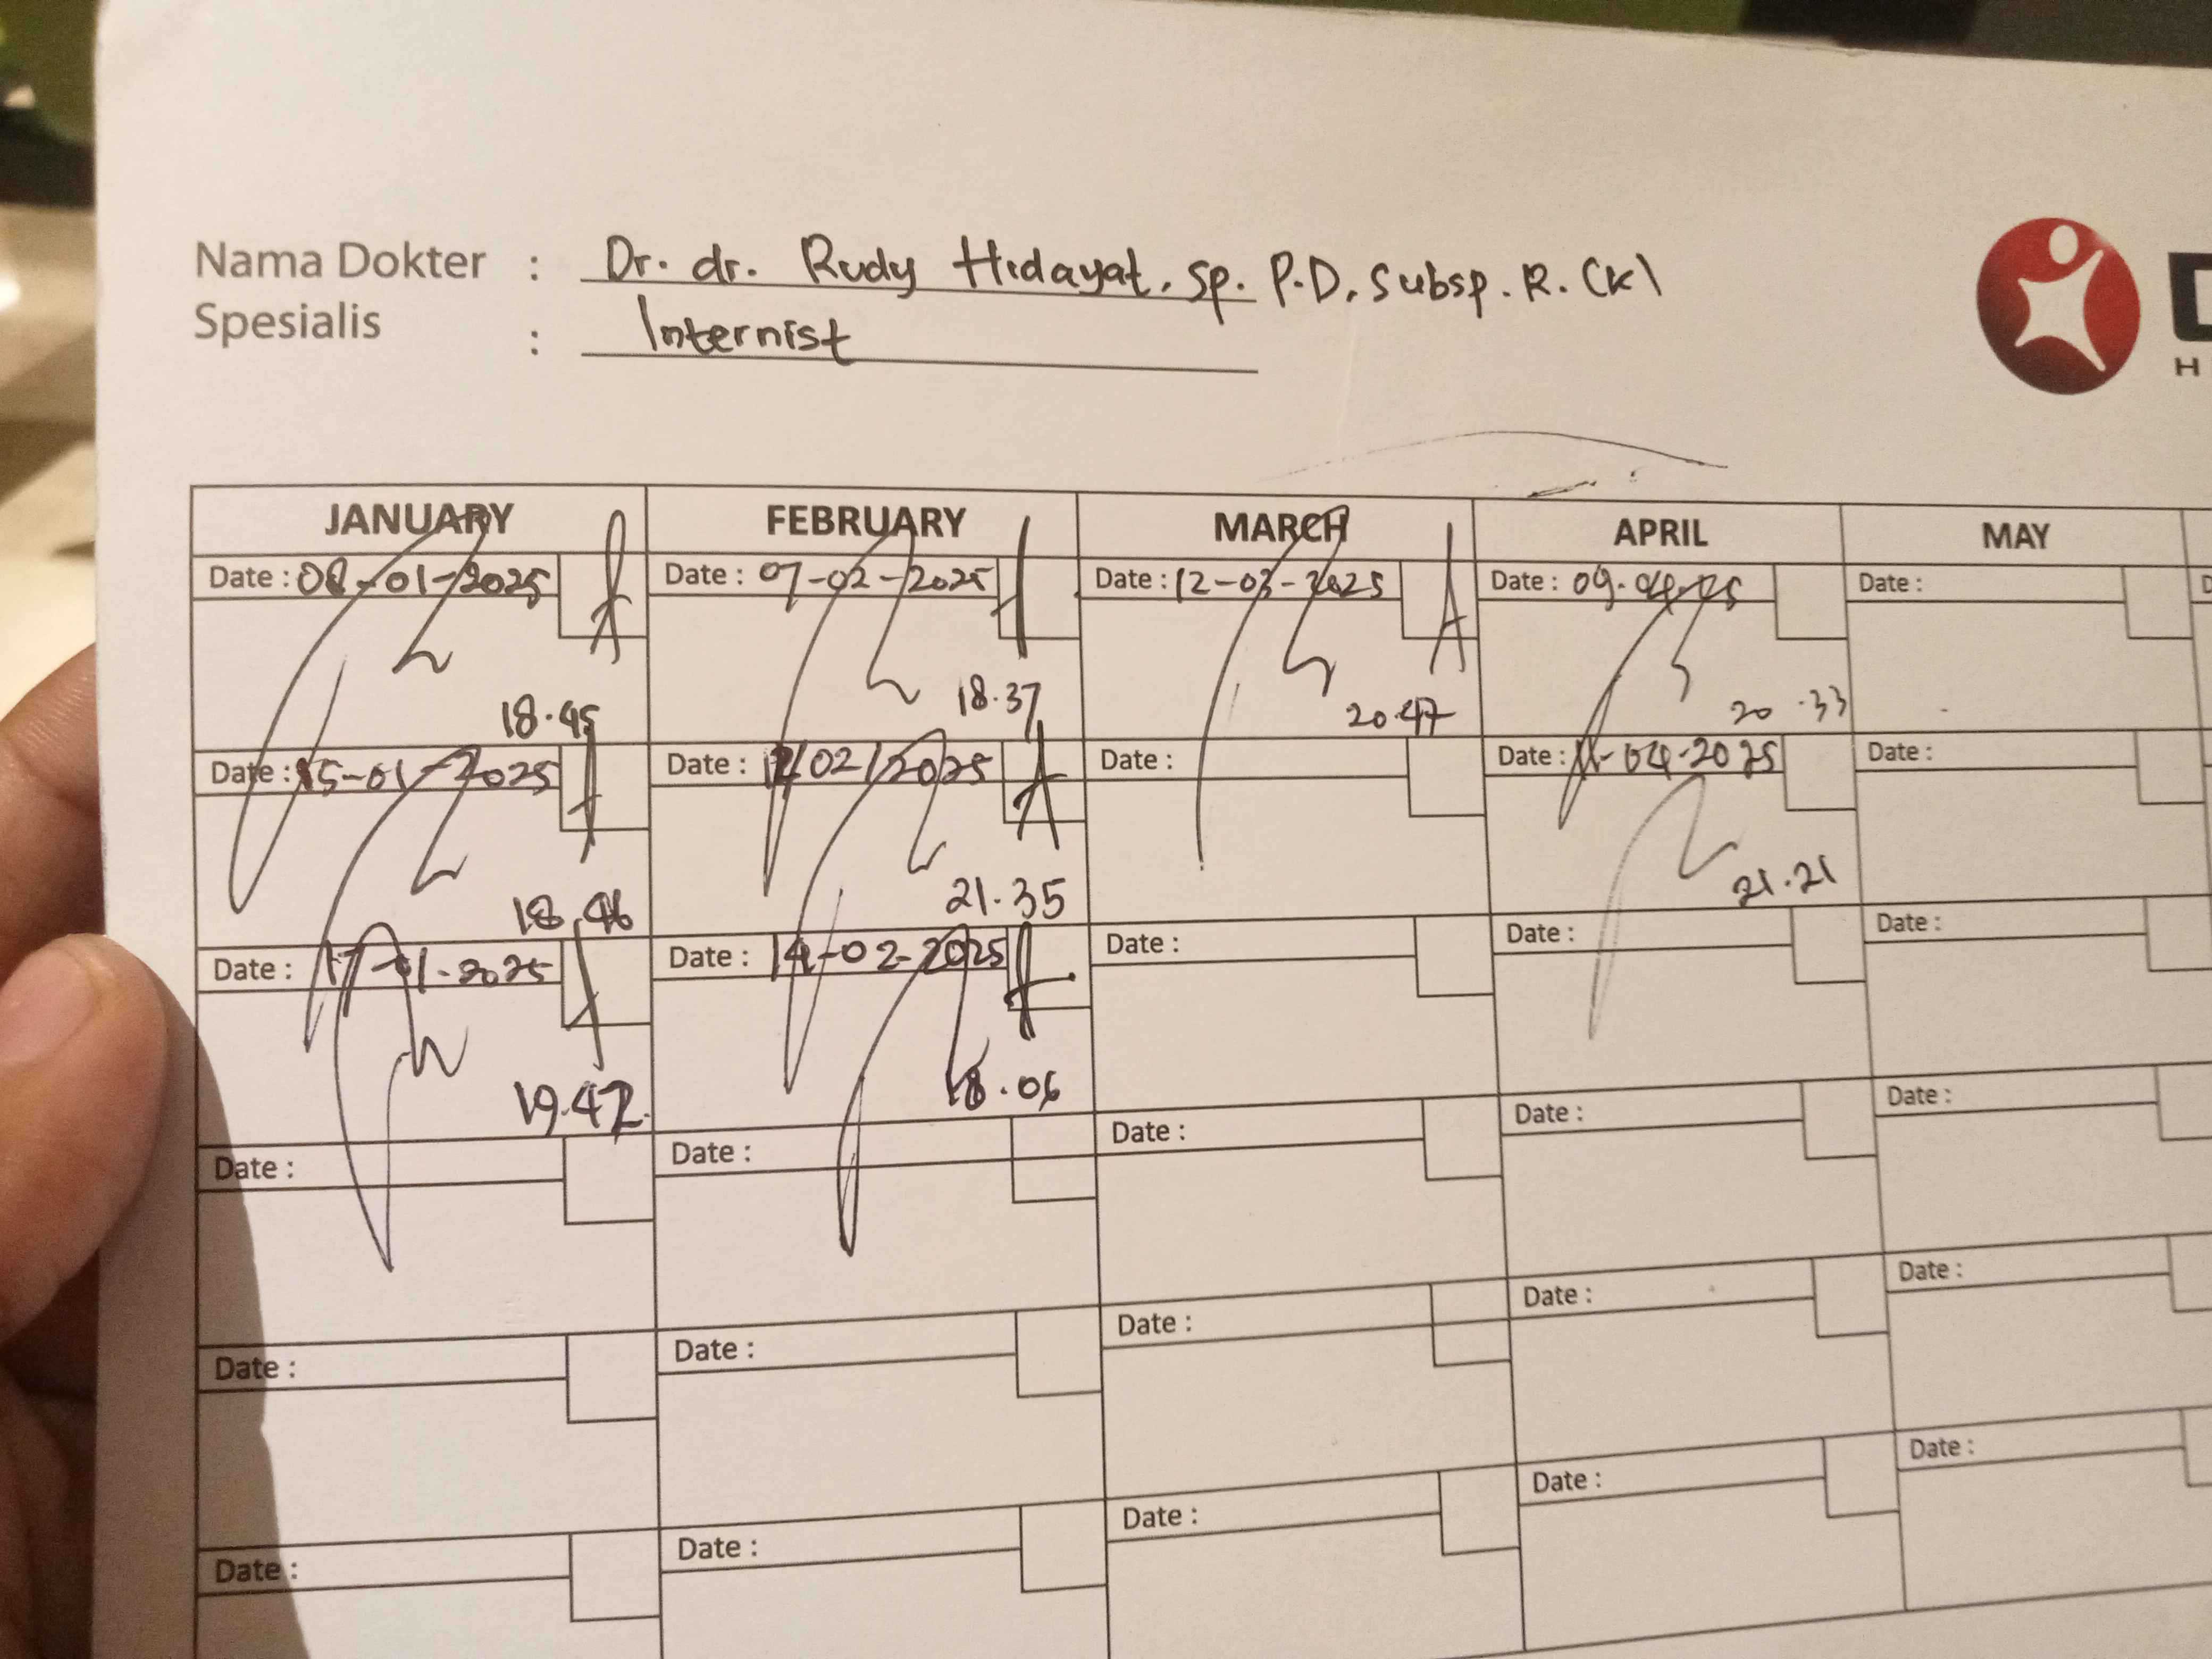 Nama Dokter : Dr. dr. Rudy Hidayat, Sp. P.D, Subsp. R. (K)
Spesialis : Internist
D
H
JANUARY FEBRUARY MARCH APRIL MAY
Date : 08-01-2025 Date : 07-02-2025 Date : 12-03-2025 Date : 09-04-25 Date :
18.45 18.37 20.47 20.33
Date : 15-01-2025 Date : 12/02/2025 Date : Date : 11-04-2025 Date :
18.46 21.35 21.21
Date : 17-01-2025 Date : 14-02-2025 Date : Date : Date :
19.42 18.06
Date : Date : Date : Date : Date :
Date : Date : Date : Date : Date :
Date : Date : Date : Date : Date :